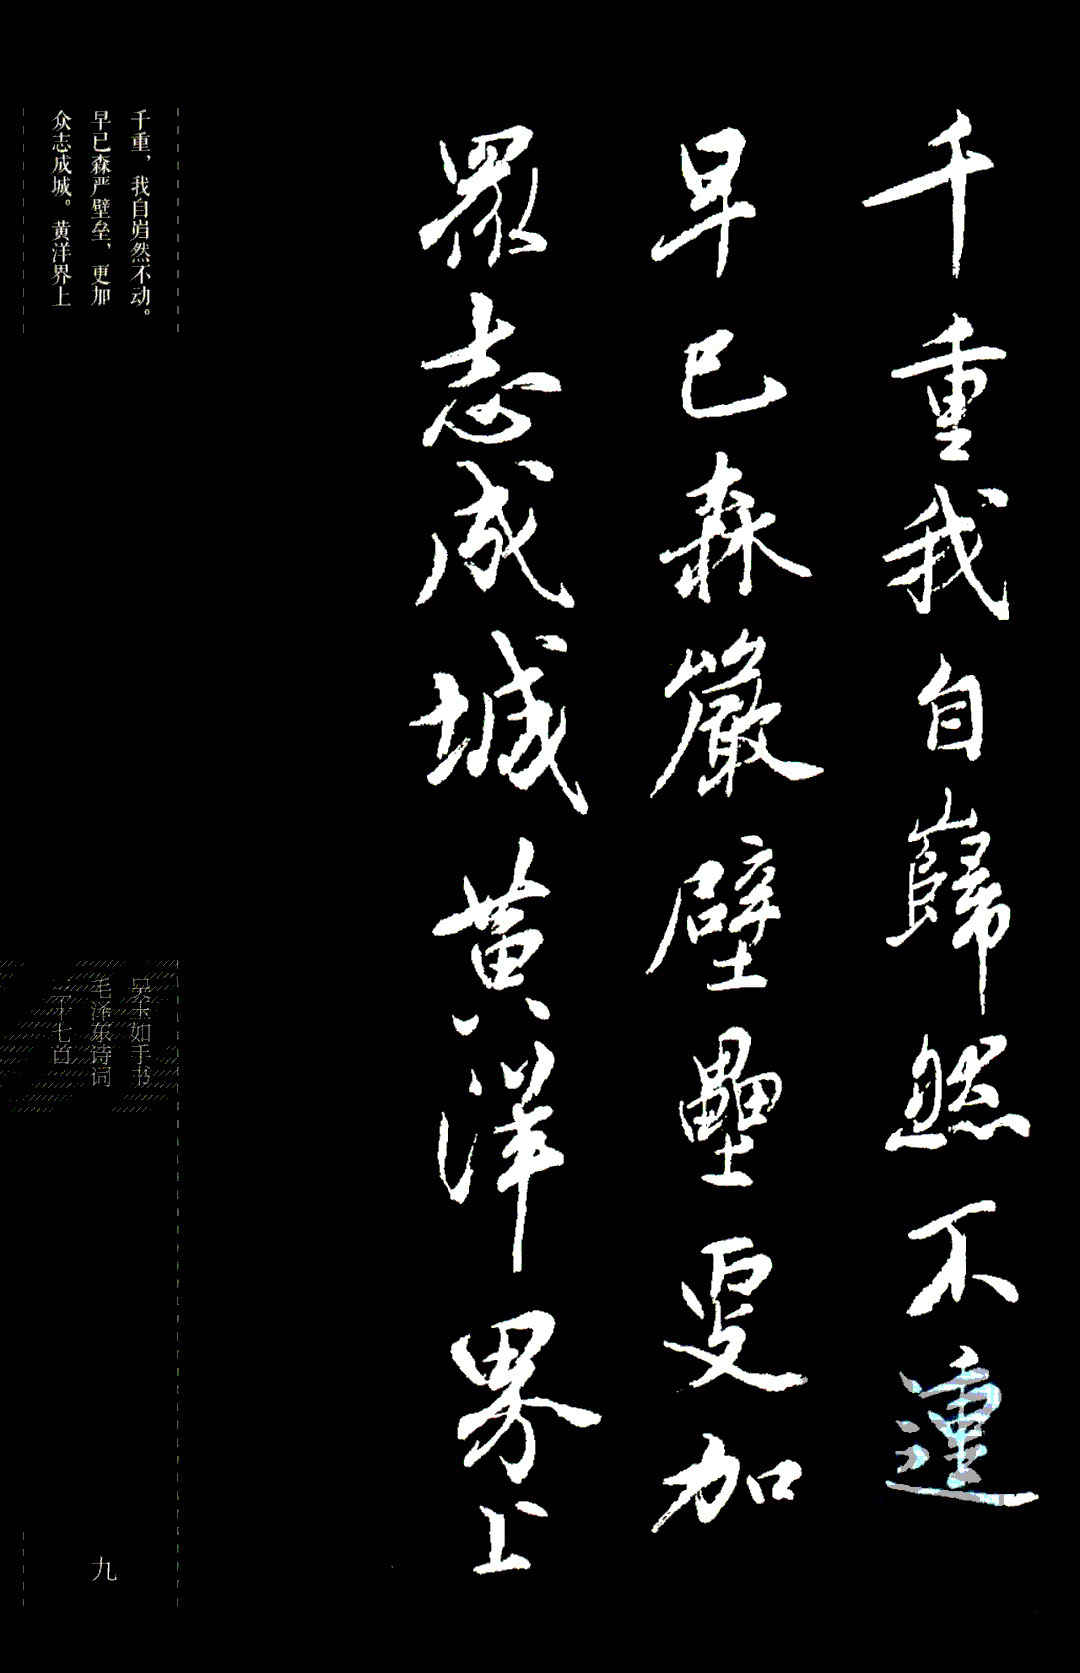 千重我自巋然不連
早已森嚴壁壘更加
眾志成城黄洋界上
千重，我自岿然不动。
早已森严壁垒，更加
众志成城。黄洋界上
吴玉如手书
毛泽东诗词
三十七首
九